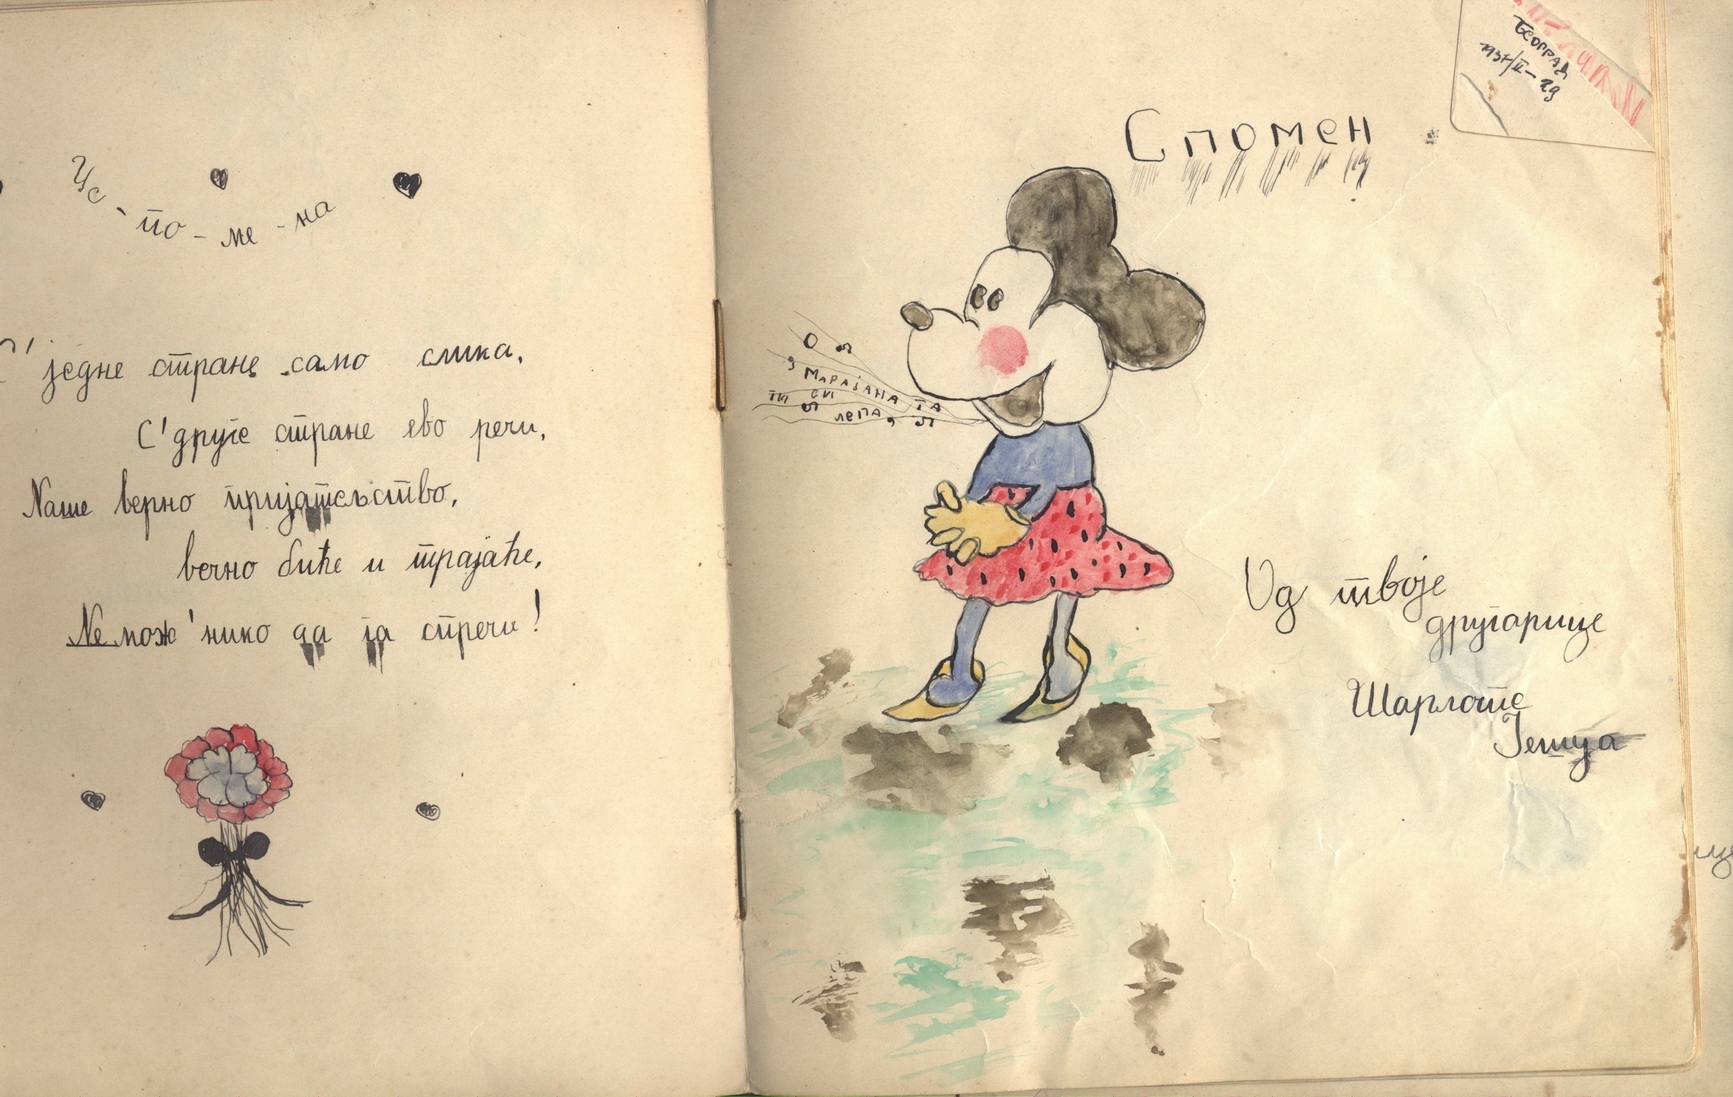 Ус-по-ме-на
С' једне стране само слика,
С' друге стране ево речи,
Наше верно пријатељство,
вечно биће и трајаће,
Не мож' нико да га спречи!
Спомен
Београд
О
Маријана та
ти си
лепа
Од твоје
другарице
Шарлоте